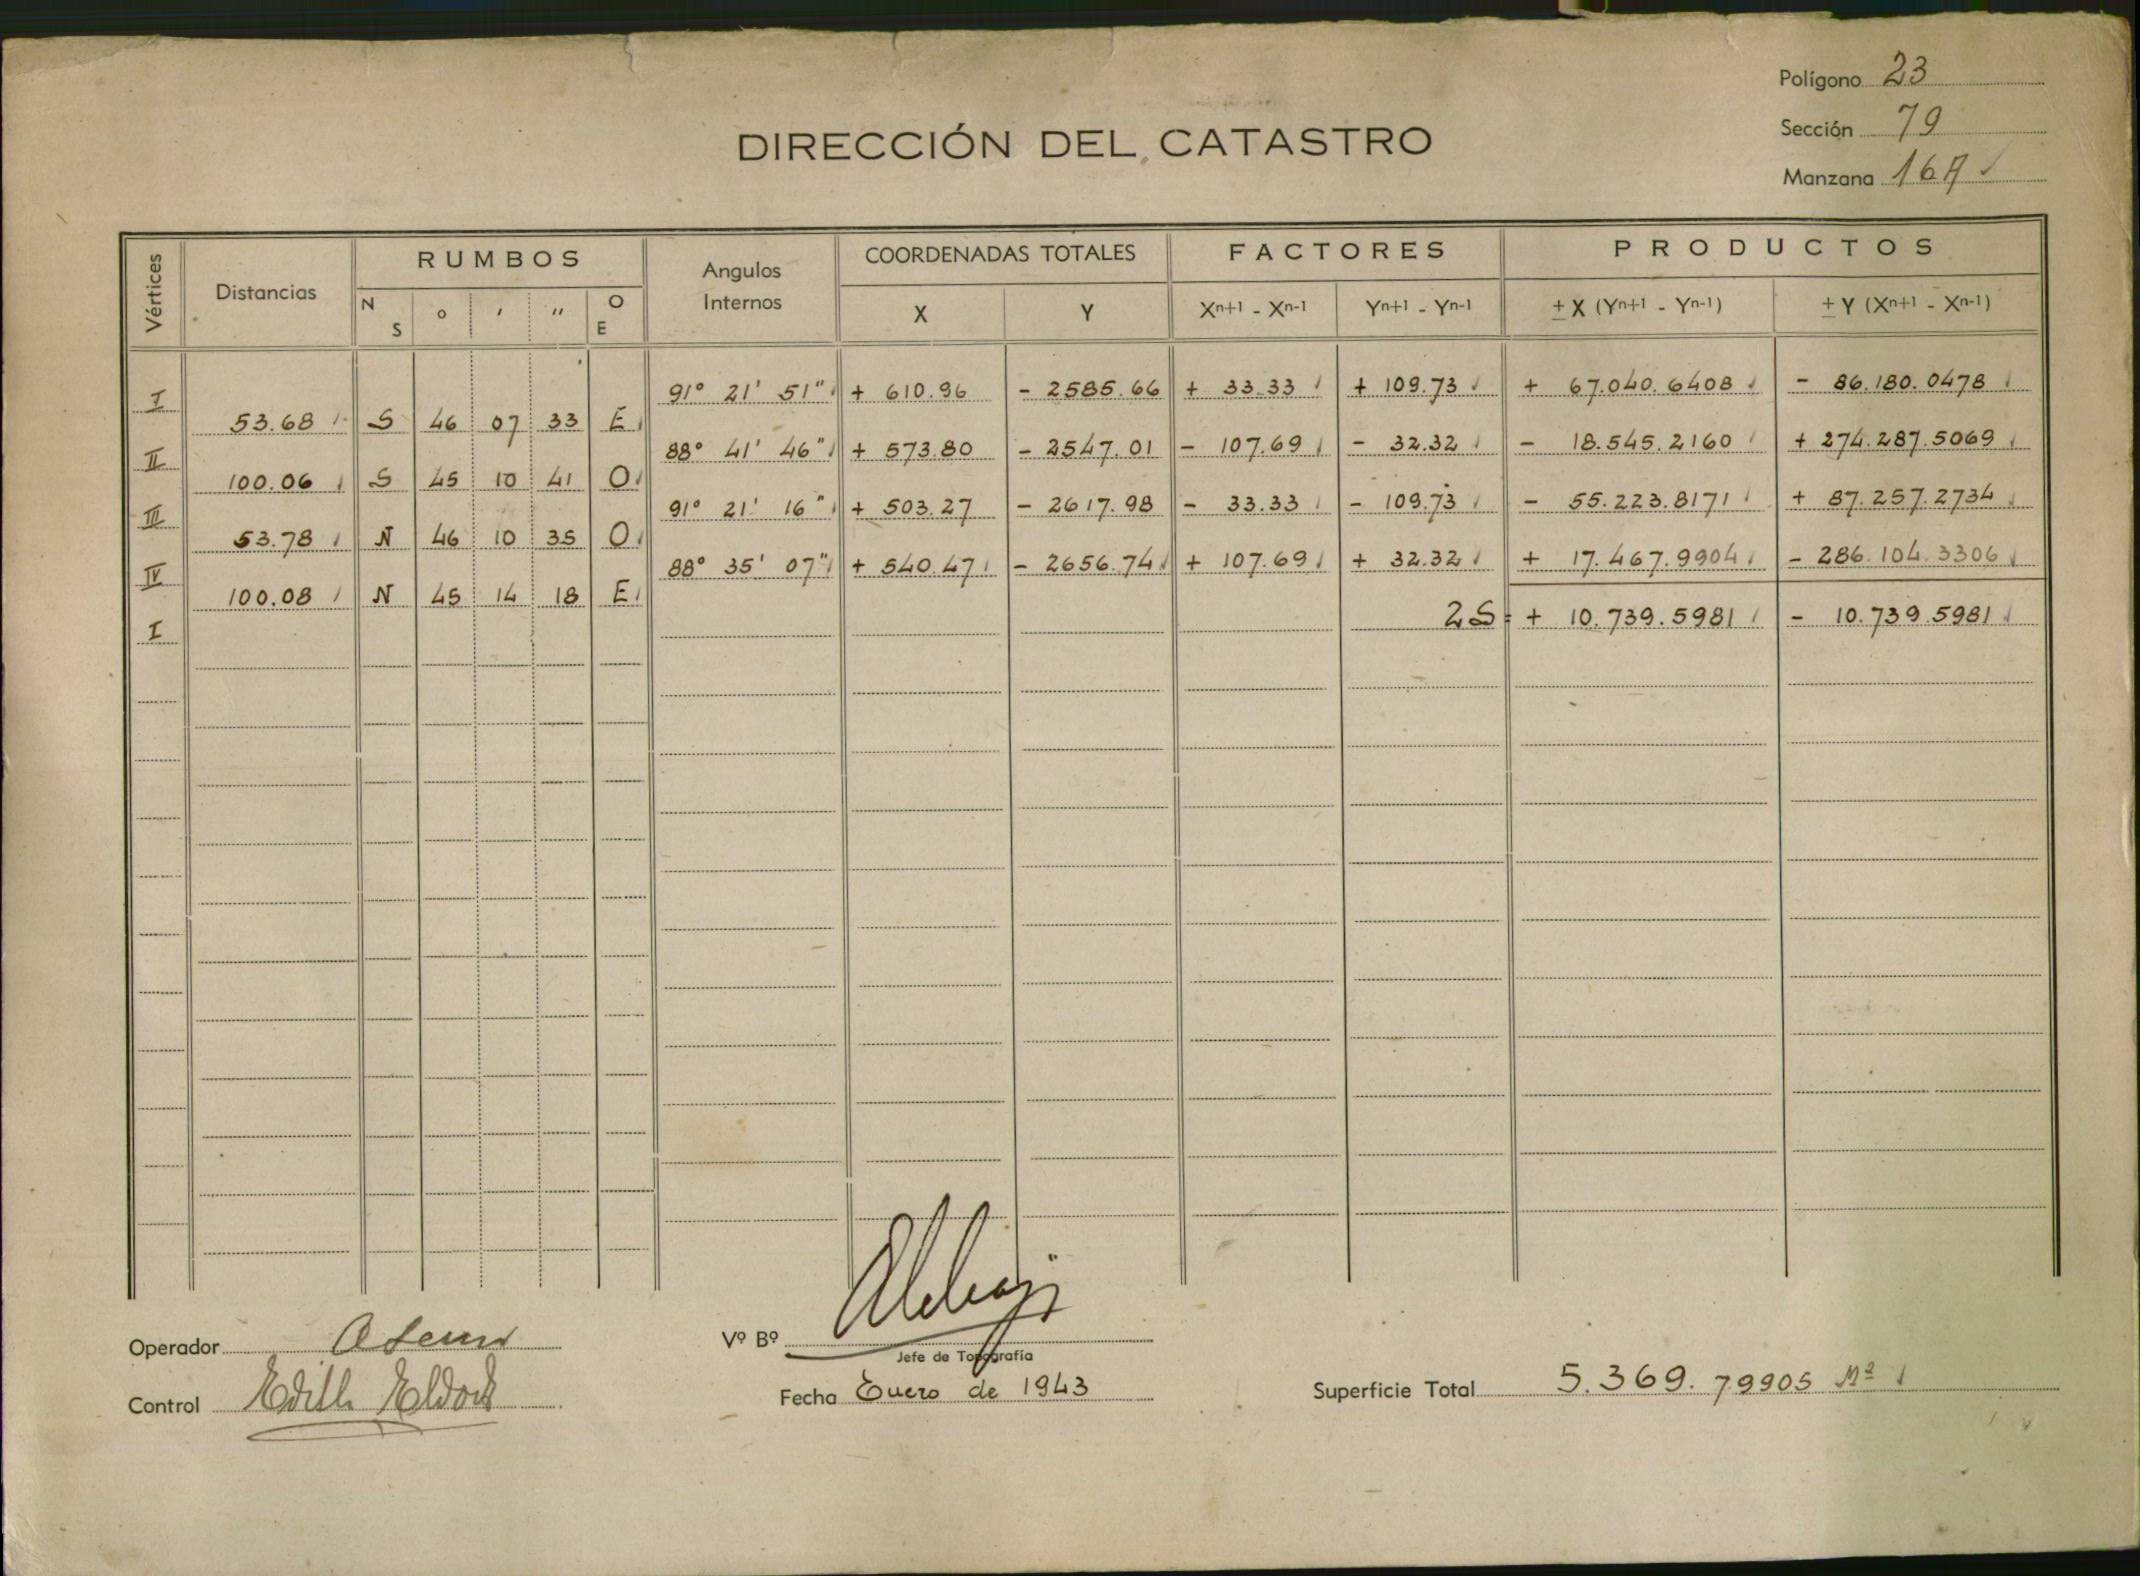 Polígono 23
DIRECCIÓN DEL CATASTRO
Sección 79
Manzana 16A
Vértices Distancias RUMBOS Angulos Internos COORDENADAS TOTALES FACTORES PRODUCTOS
N S o ' " O E X Y Xn+1 - Xn-1 Yn+1 - Yn-1 ± X (Yn+1 - Yn-1) ± Y (Xn+1 - Xn-1)
I 91° 21' 51" + 610.96 - 2585.66 + 33.33 + 109.73 + 67.040.6408 - 86.180.0478
53.68 S 46 07 33 E
II 88° 41' 46" + 573.80 - 2547.01 - 107.69 - 32.32 - 18.545.2160 + 274.287.5069
100.06 S 45 10 41 O
III 91° 21' 16" + 503.27 - 2617.98 - 33.33 - 109.73 - 55.223.8171 + 87.257.2734
53.78 N 46 10 35 O
IV 88° 35' 07" + 540.47 - 2656.74 + 107.69 + 32.32 + 17.467.9904 - 286.104.3306
100.08 N 45 14 18 E
I 2S = + 10.739.5981 - 10.739.5981
Operador
Vº Bº
Jefe de Topografía
Control Edith
Fecha Enero de 1943
Superficie Total 5.369.79905 M²